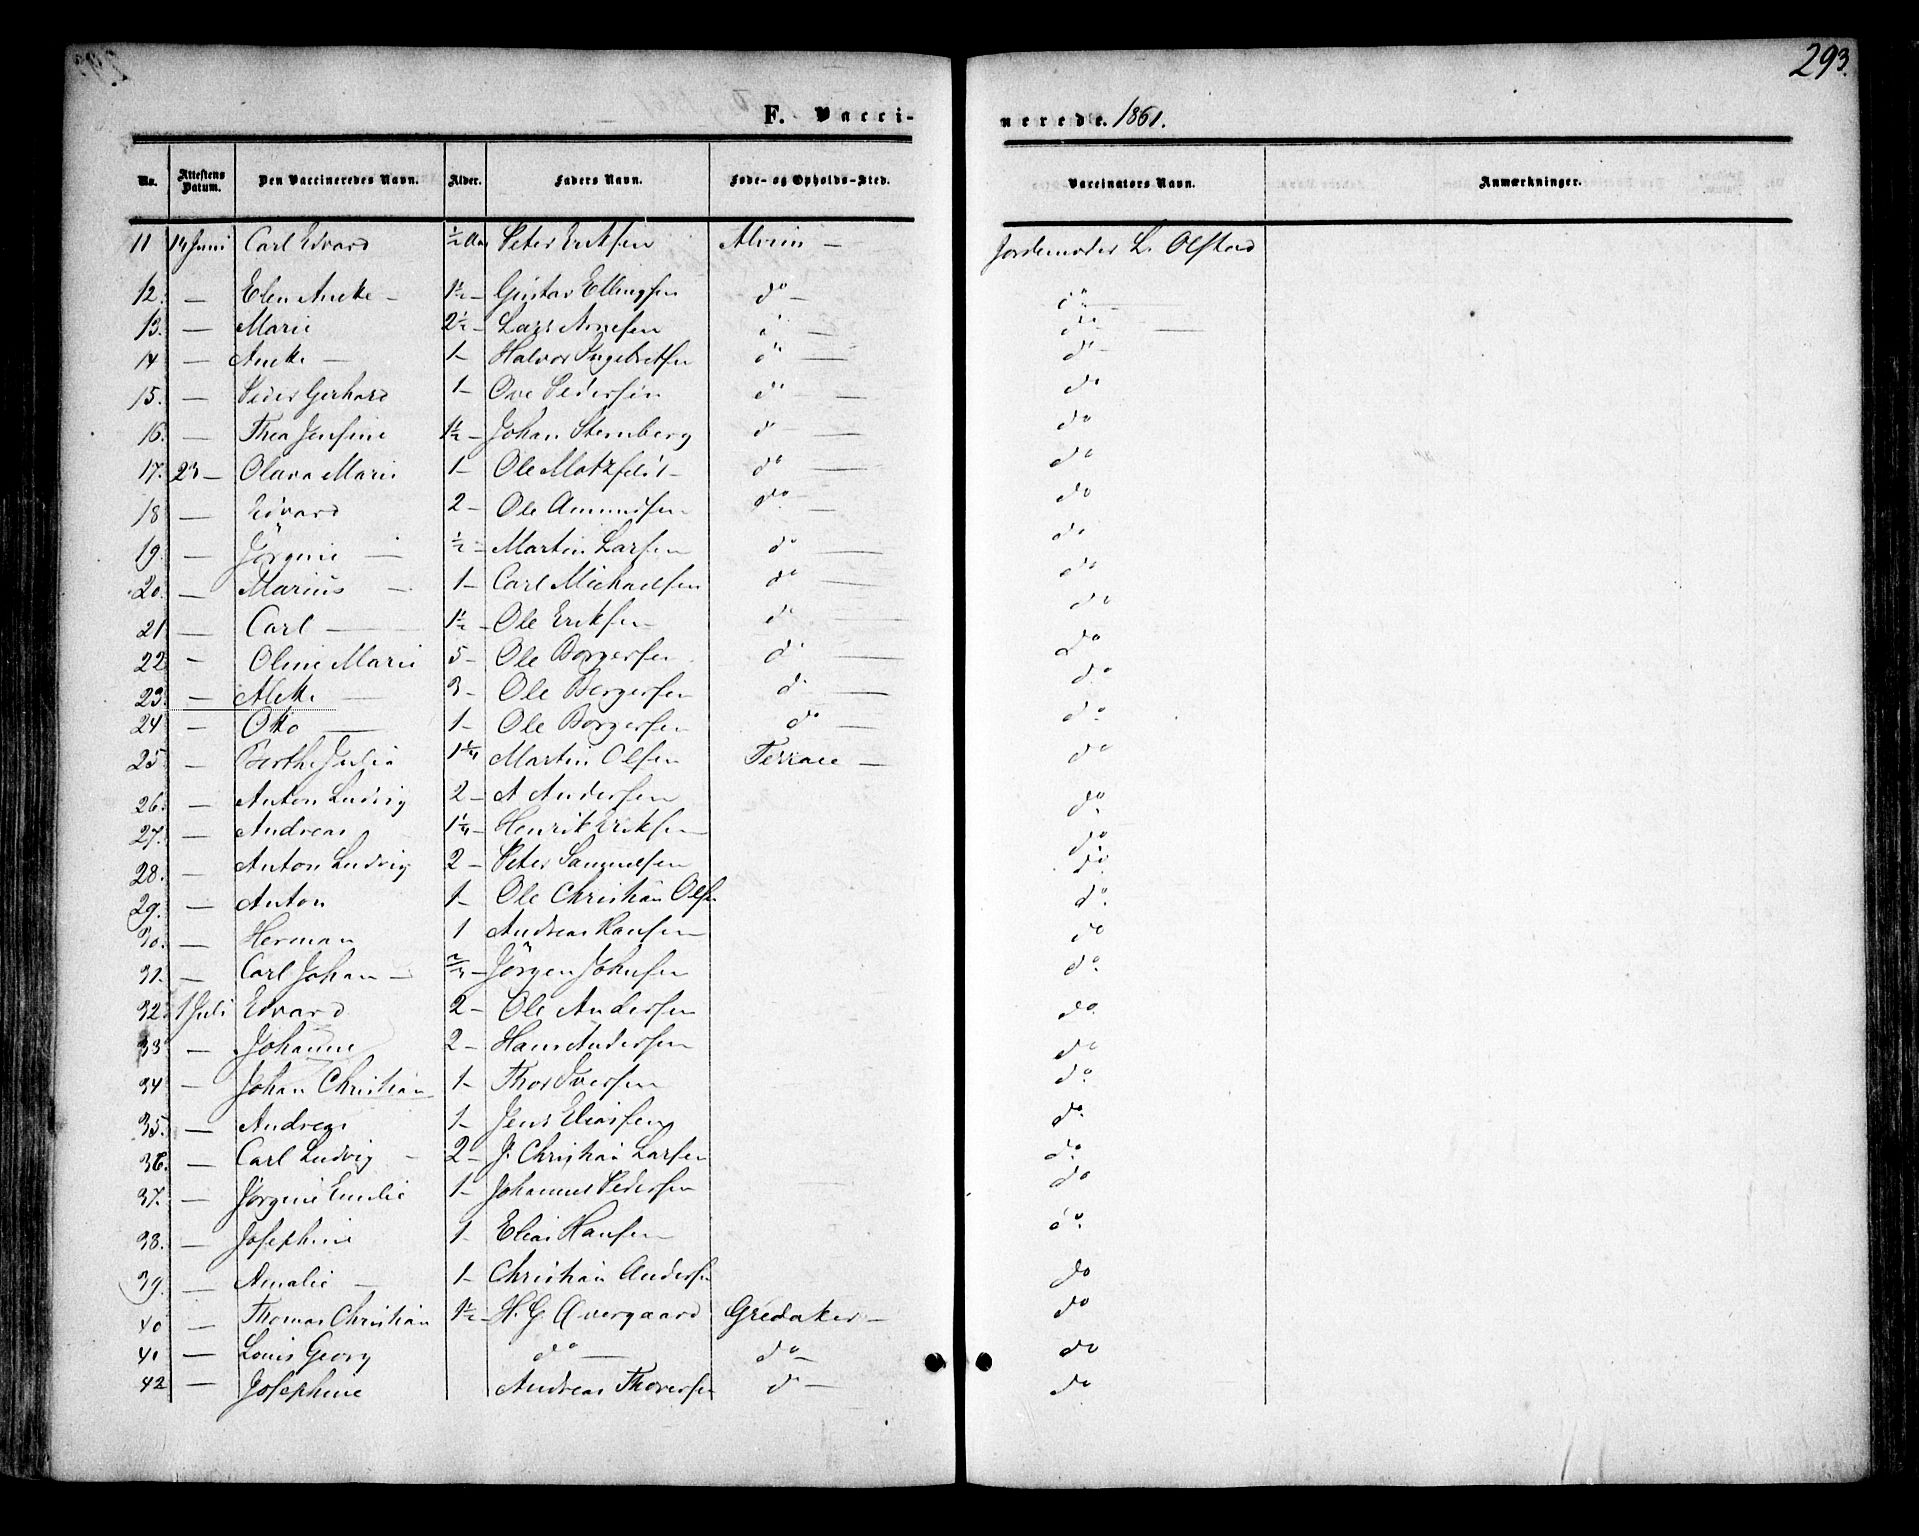 293.
F. Vaccinerede. 1861.
No. Attestens Datum. Den Vaccineredes Navn. Alder. Faders Navn. Føde- og Opholds-Sted. Vaccinators Navn. Anmærkninger.
11 14 Juni Carl Edvard ½ Aar Peter Eriksen Alvim — Jordemoder L. Olstad
12. — Elen Anette — 1½ — Gustav Ellingsen do — do
13. — Marie 2½ — Lars Arnesen do — do —
14 — Anette — 1 — Halvor Ingebretsen do — do
15. — Peder Gerhard 1 — Ove Pedersen do — do
16. — Thea Josefine 1½ — Johan Sternberg do — do
17. 23 — Olava Marie 1 — Ole Motzfeldt — do — do
18 — Edvard 2 — Ole Amundsen do — do
19. — Jörgine — ½ — Martin Larsen do — do
20. — Marius — 1 — Carl Michaelsen do — do
21 — Carl — 1½ — Ole Eriksen do — do
22 — Oline Marie 5 — Ole Borgersen do — do
23. — Alette — 3 — Ole Borgersen do — do
24 — Otto — 1 — Ole Borgersen do — do
25 — Berthe Julia 1¼ Martin Olsen Terrace — do
26. — Anton Ludvig 2 — A Andersen do
27. — Andreas 1¼ — Henrik Eriksen do
28. — Anton Ludvig 2 — Peter Samuelsen do
29. — Anton 1 — Ole Christian Olsen do
30. — Herman 1 Andreas Hansen do
31. — Carl Johan — ¾ — Jörgen Johnsen do
32. 1 Juli Edvard 2 — Ole Andersen do
33 — Johanne 2 — Hans Andersen do
34 — Johan Christian 1 — Thor Iversen do
35. — Andreas 1 — Jens Eliassen do
36. — Carl Ludvig — 2 — J. Christian Larsen do
37. — Jörgine Emilie 1 — Johannes Pedersen do
38. — Josephine 1 — Elias Hansen do
39. — Amalie — 1 — Christian Andersen do
40 — Thomas Christian 1½ — H. G Overgaard Gredaker — do
41 — Louis Georg do — do — do
42 — Josephine Andreas Thoresen do — do